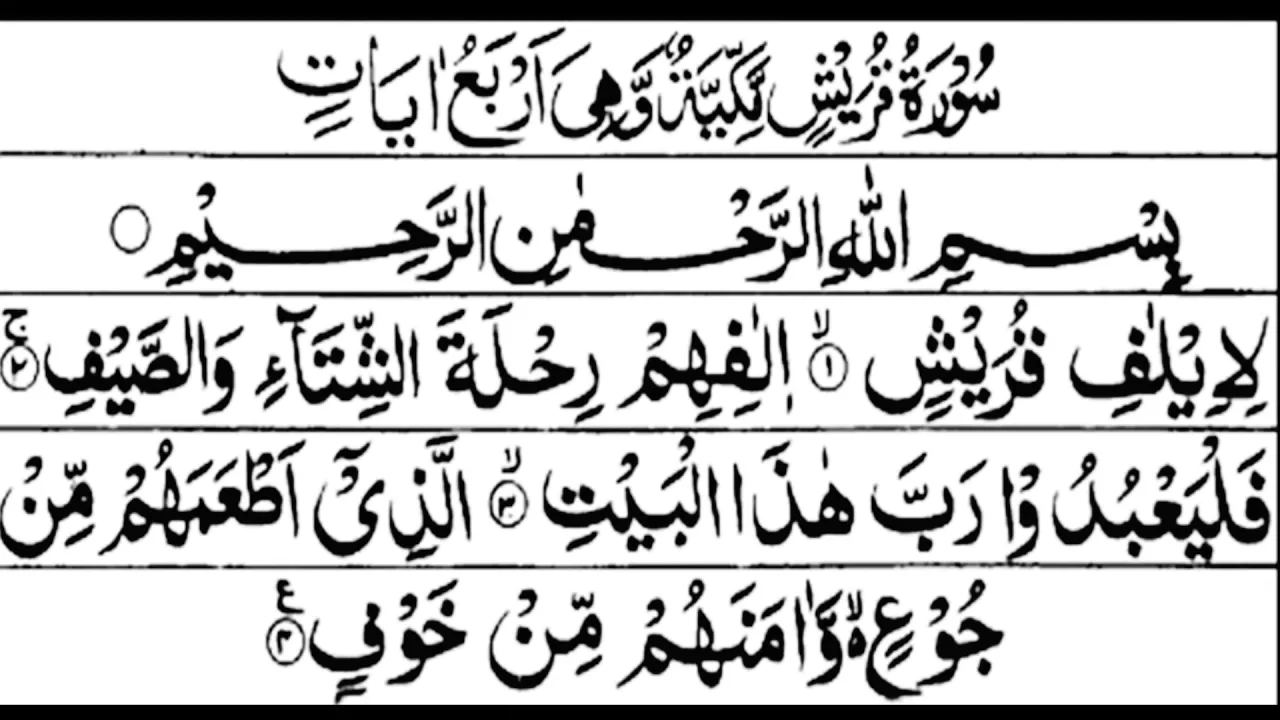 سُوْرَةُ قُرَيْشٍ مَّكِّيَّةٌ وَّهِىَ اَرْبَعُ اٰيَاتٍ
بِسْمِ اللّٰهِ الرَّحْمٰنِ الرَّحِيْمِ ○
لِاِيْلٰفِ قُرَيْشٍ ۙ﴿۱﴾ اٖلٰفِهِمْ رِحْلَةَ الشِّتَآءِ وَالصَّيْفِ ۚ﴿۲﴾
فَلْيَعْبُدُوْا رَبَّ هٰذَا الْبَيْتِ ۙ﴿۳﴾ الَّذِىْٓ اَطْعَمَهُمْ مِّنْ
جُوْعٍ ۙ۬ وَّاٰمَنَهُمْ مِّنْ خَوْفٍ ﴿۴﴾ ع